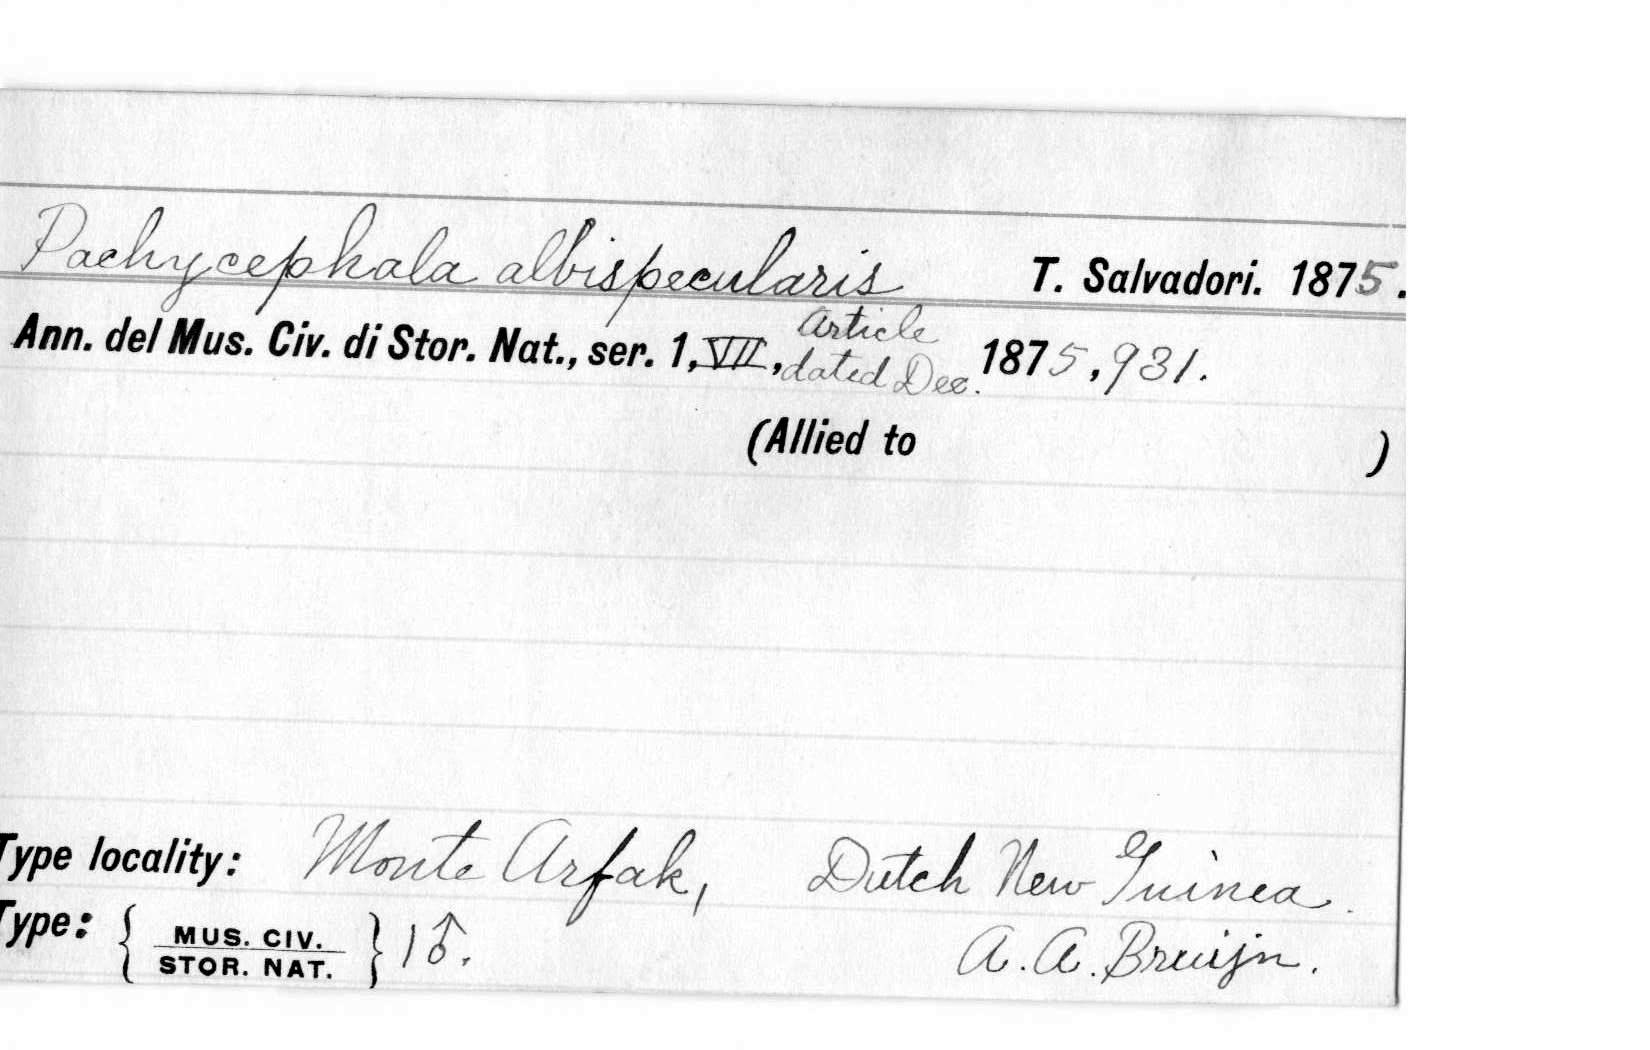 Pachycephala albispecularis T. Salvadori. 1875.
Ann. del Mus. Civ. di Stor. Nat., ser. 1, VII, Article dated Dec. 1875, 931.
(Allied to )
Type locality: Monte Arfak, Dutch New Guinea.
Type: { MUS. CIV. STOR. NAT. } 1♂. A. A. Bruijn.